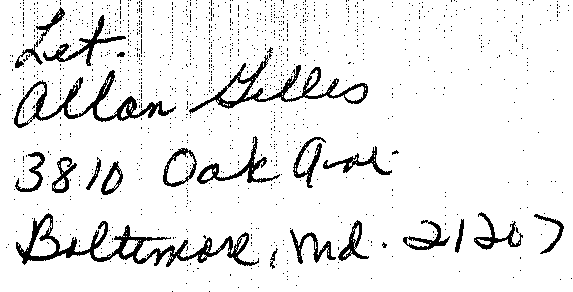 Let.
Allan Gilles
3810 Oak Ave.
Baltimore, Md. 21207